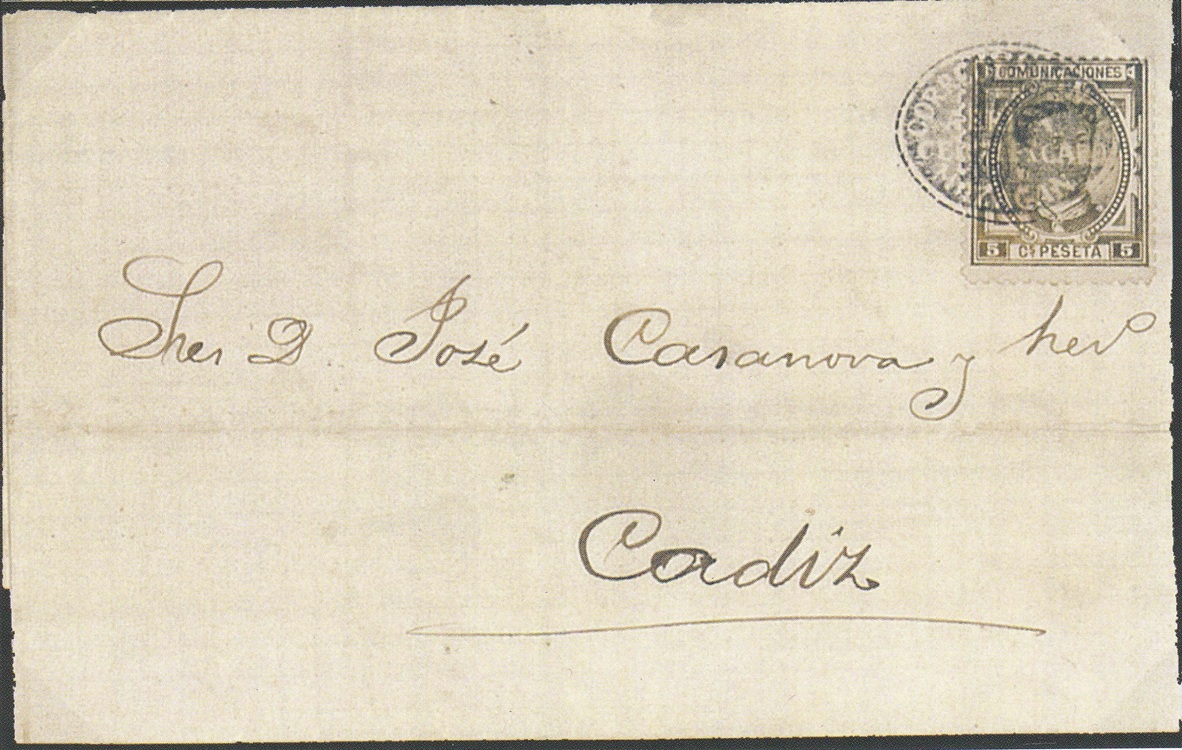 COMUNICACIONES
5 Cs PESETA 5
Sres D. José Casanova y herº
Cadiz